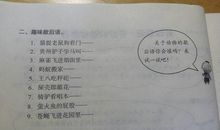 二、趣味歇后语。
1. 猫捉老鼠狗看门——
2. 黄州驴子学马叫——
3. 麻雀飞进烟囱里——
4. 蚂蚁搬家——
5. 王八吃秤砣——
6. 屎壳郎戴花——
7. 骑驴看唱本——
8. 萤火虫的屁股——
9. 苍蝇飞进花园里——
关于动物的歇
后语你会很吗？来
试一试吧！